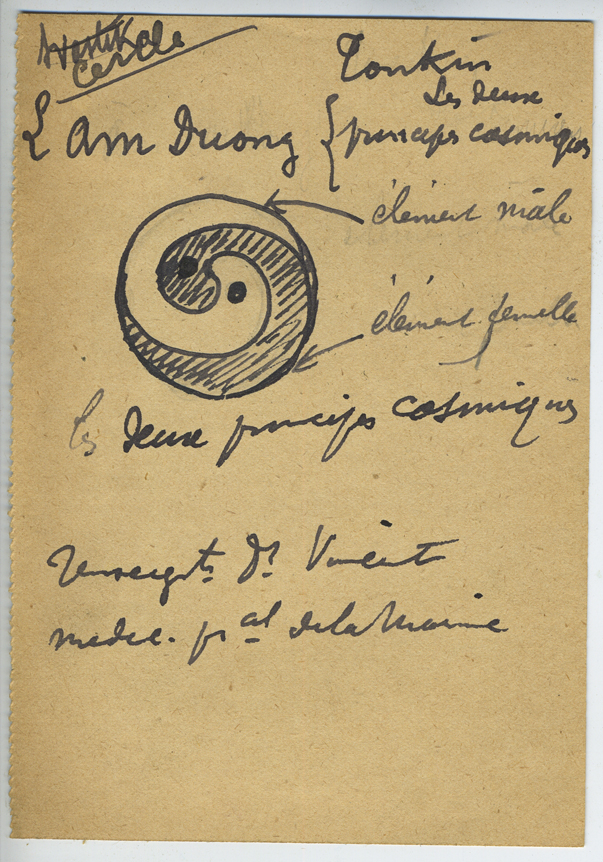 Cercle
Tonkin
L'am Duong { Les deux
principes cosmiques
élément mâle
élément femelle
les deux principes cosmiques
Renseigts Dr Vincent
medec. pal de la Marine